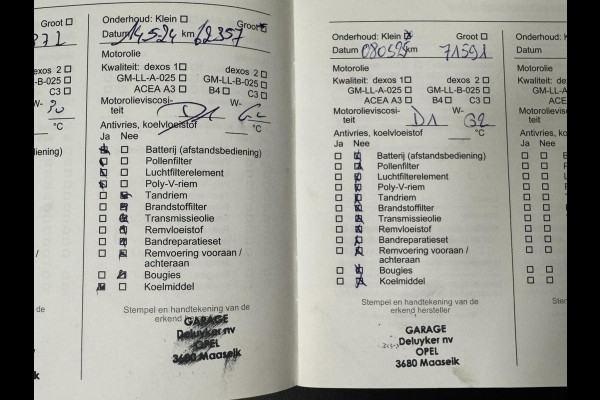 Groot
dexos 2
GM-LL-B-025
C3
W-
°C
Onderhoud: Klein Groot
Datum 14-5-24 km 62357
Motorolie
Kwaliteit: dexos 1 dexos 2
GM-LL-A-025 GM-LL-B-025
ACEA A3 B4 C3
Motorolieviscosi- W-
teit D1 G2
Antivries, koelvloeistof °C
Ja Nee
Batterij (afstandsbediening)
Pollenfilter
Luchtfilterelement
Poly-V-riem
Tandriem
Brandstoffilter
Transmissieolie
Remvloeistof
Bandreparatieset
Remvoering vooraan /
achteraan
Bougies
Koelmiddel
Stempel en handtekening van de
erkend
GARAGE
Deluyker nv
OPEL
3680 Maaseik
Onderhoud: Klein Groot
Datum 080525 km 71591
Motorolie
Kwaliteit: dexos 1 dexos 2
GM-LL-A-025 GM-LL-B-025
ACEA A3 B4 C3
Motorolieviscosi- W-
teit D1 G2
Antivries, koelvloeistof °C
Ja Nee
Batterij (afstandsbediening)
Pollenfilter
Luchtfilterelement
Poly-V-riem
Tandriem
Brandstoffilter
Transmissieolie
Remvloeistof
Bandreparatieset
Remvoering vooraan /
achteraan
Bougies
Koelmiddel
Stempel en handtekening van de
erkend hersteller
GARAGE
Deluyker nv
OPEL
3680 Maaseik
Onderhoud: K
Datum
Motorolie
Kwaliteit: dex
GM-LL-A
ACE
Motorolievis
teit
Antivries, k
Ja Nee